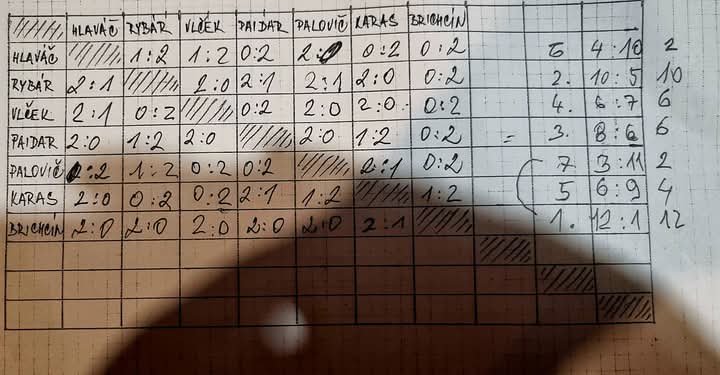 HLAVÁČ RYBÁR VLČEK PAIDAR PALOVIČ KARAS BRICHCÍN
HLAVÁČ 1:2 1:2 0:2 2:0 0:2 0:2 6 4:10 2
RYBÁR 2:1 2:0 2:1 2:1 2:0 0:2 2. 10:5 10
VLČEK 2:1 0:2 0:2 2:0 2:0 0:2 4. 6:7 6
PAIDAR 2:0 1:2 2:0 2:0 1:2 0:2 = 3. 8:6 6
PALOVIČ 0:2 1:2 0:2 0:2 2:1 0:2 7. 3:11 2
KARAS 2:0 0:2 0:2 2:1 1:2 1:2 5 6:9 4
BRICHCÍN 2:0 2:0 2:0 2:0 2:0 2:1 1. 12:1 12